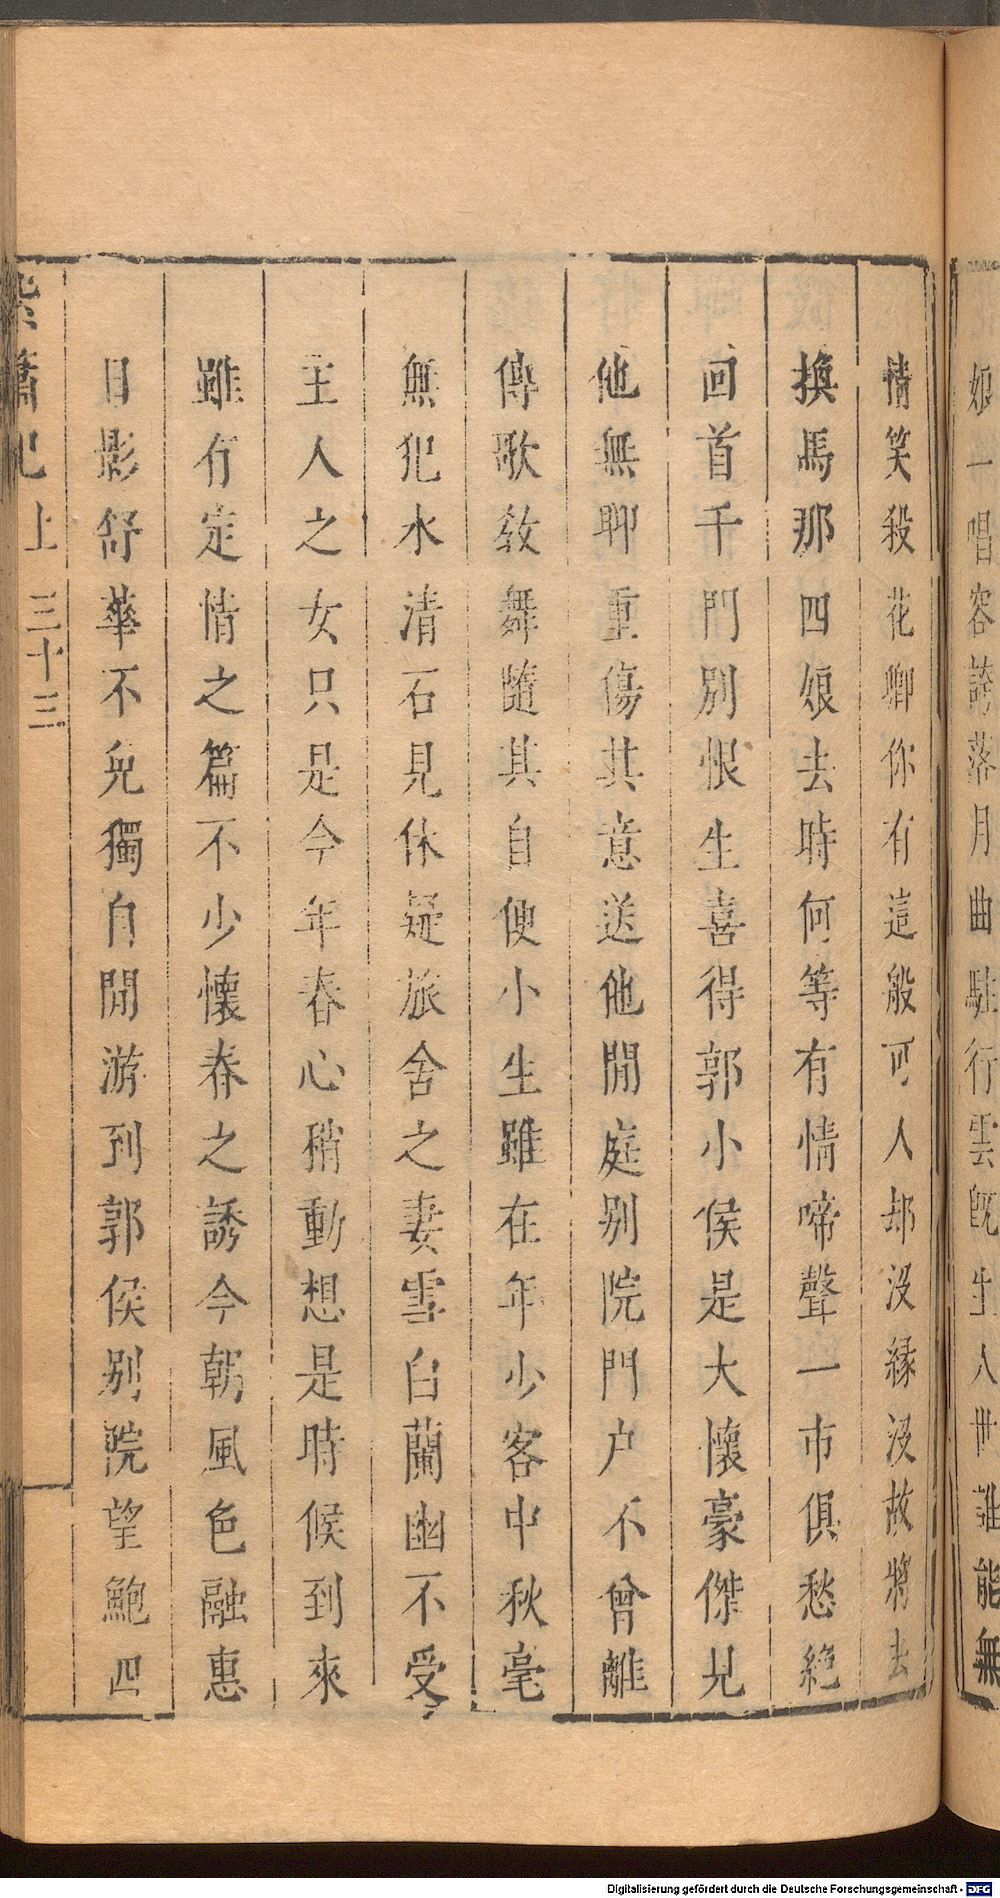 娘一唱容誇落月曲駐行雲旣生人世誰能無
情笑殺花卿你有這般可人却没緣没故將去
換馬那四娘去時何等有情啼聲一市俱愁絶
回首千門別恨生喜得郭小侯是大懷豪傑見
他無聊重傷其意送他閒庭别院門户不曾離
傳歌敎舞隨其自便小生雖在年少客中秋毫
無犯水清石見休疑旅舍之妻雪白蘭幽不受
主人之女只是今年春心稍動想是時候到來
雖冇定情之篇不少懷春之誘今朝風色融惠
日影舒華不免獨自閒游到郭侯别院望鮑四
紫簫記上 三十三
Digitalisierung gefördert durch die Deutsche Forschungsgemeinschaft - DFG